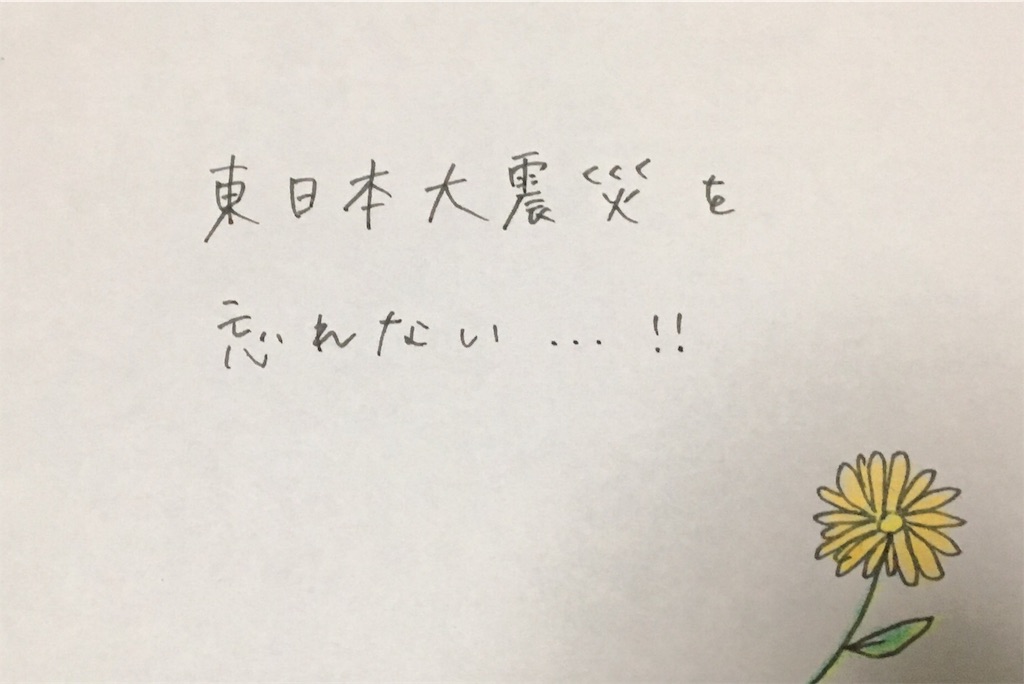 東日本大震災を
忘れない…!!